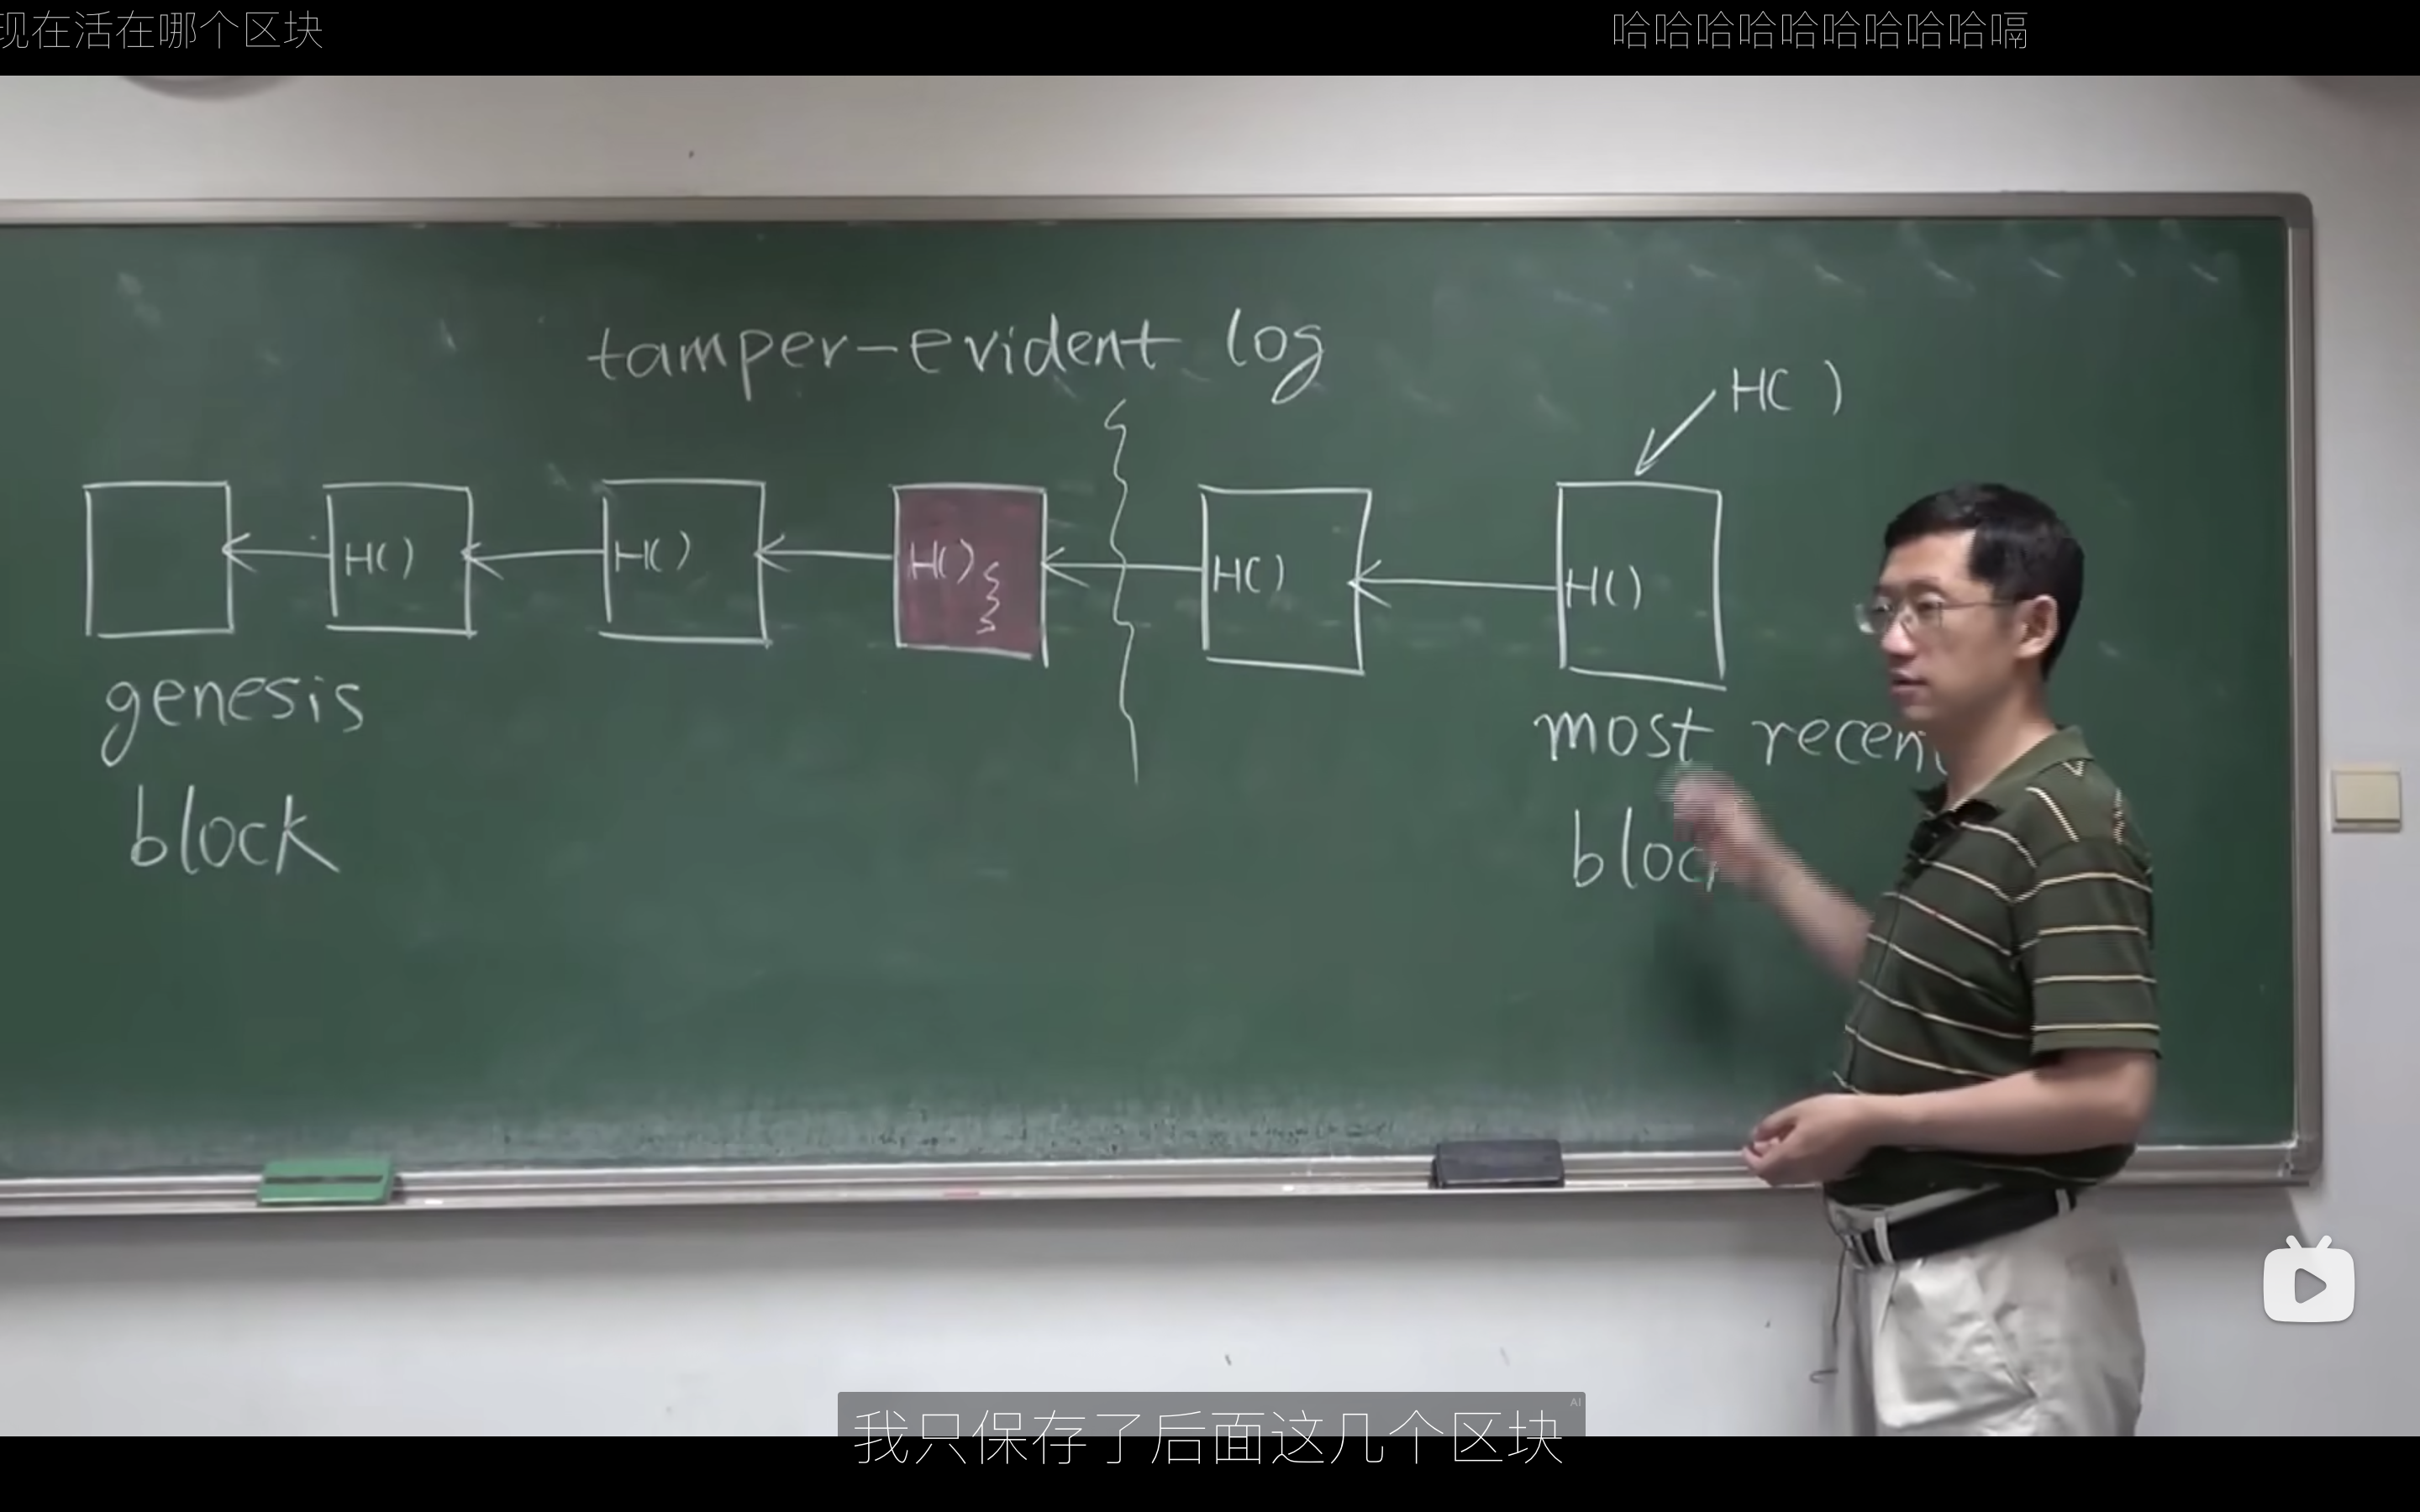 现在活在哪个区块
哈哈哈哈哈哈哈哈哈嗝
tamper-evident log
H( )
H() H() H() H() H()
genesis
block
most recen
bloc
AI
我只保存了后面这几个区块